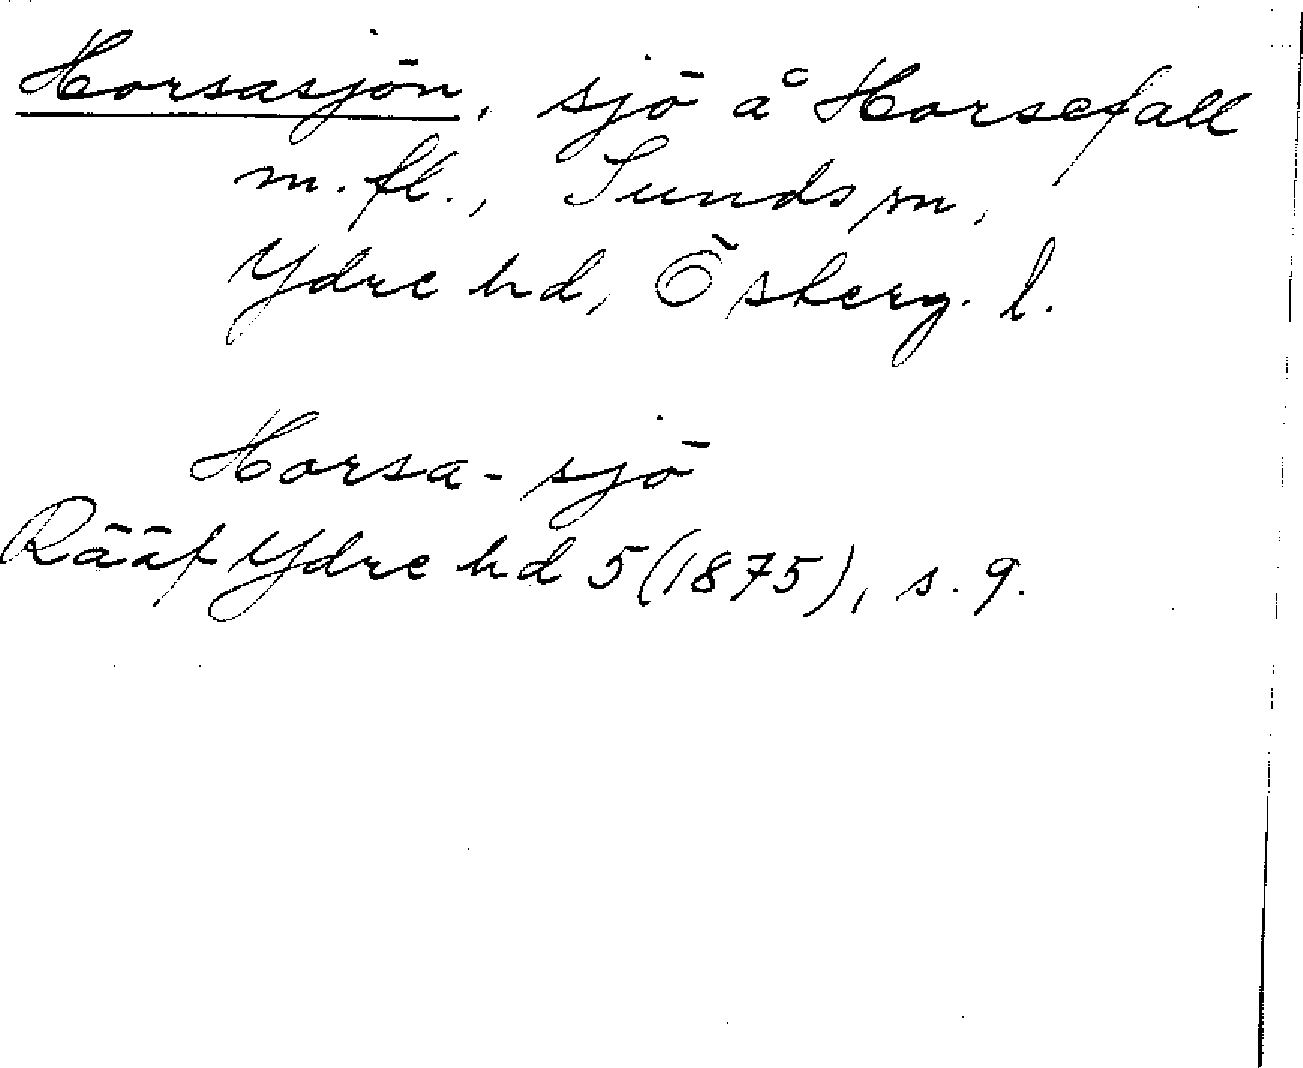 Horsasjön, sjö å Horsefall
m. fl., Sunds sn,
Ydre hd, Österg. l.
Horsa-sjö
Rääf Ydre hd 5 (1875), s. 9.